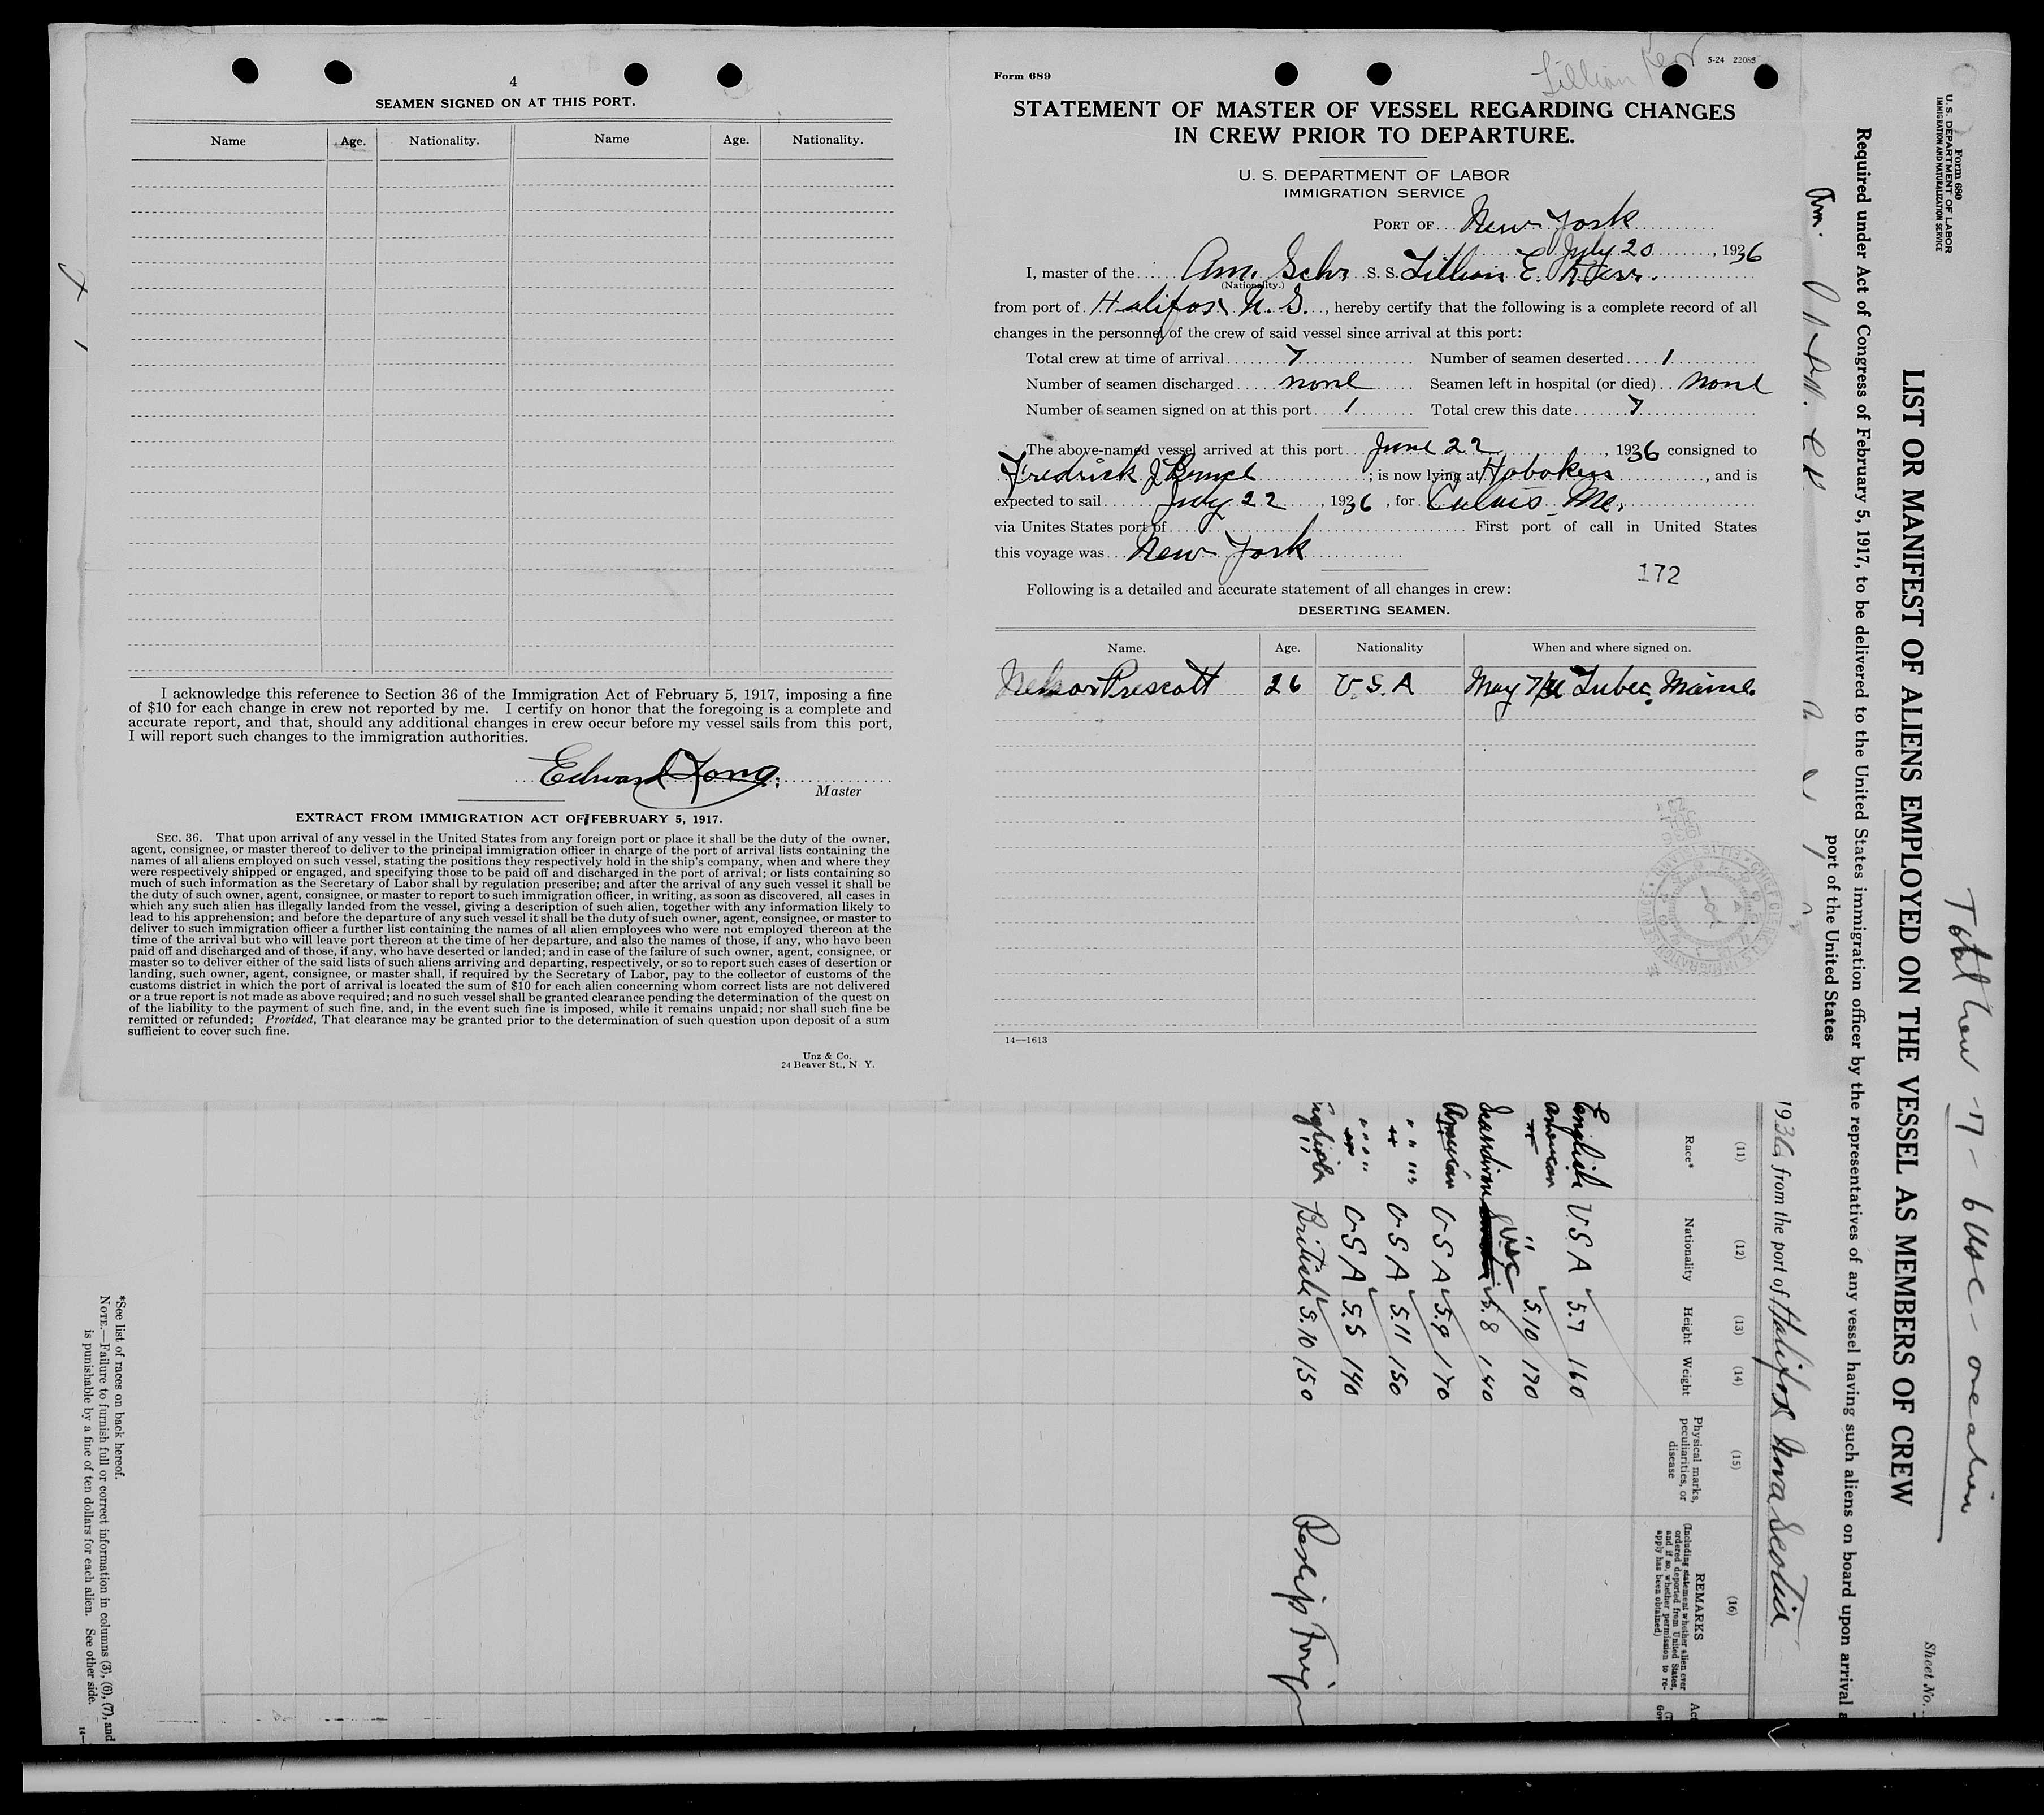 4
SEAMEN SIGNED ON AT THIS PORT.
Name Age. Nationality. Name Age. Nationality.
I acknowledge this reference to Section 36 of the Immigration Act of February 5, 1917, imposing a fine
of $10 for each change in crew not reported by me. I certify on honor that the foregoing is a complete and
accurate report, and that, should any additional changes in crew occur before my vessel sails from this port,
I will report such changes to the immigration authorities.
Edward Long.
Master
EXTRACT FROM IMMIGRATION ACT OF FEBRUARY 5, 1917.
SEC. 36. That upon arrival of any vessel in the United States from any foreign port or place it shall be the duty of the owner,
agent, consignee, or master thereof to deliver to the principal immigration officer in charge of the port of arrival lists containing the
names of all aliens employed on such vessel, stating the positions they respectively hold in the ship's company, when and where they
were respectively shipped or engaged, and specifying those to be paid off and discharged in the port of arrival; or lists containing so
much of such information as the Secretary of Labor shall by regulation prescribe; and after the arrival of any such vessel it shall be
the duty of such owner, agent, consignee, or master to report to such immigration officer, in writing, as soon as discovered, all cases in
which any such alien has illegally landed from the vessel, giving a description of such alien, together with any information likely to
lead to his apprehension; and before the departure of any such vessel it shall be the duty of such owner, agent, consignee, or master to
deliver to such immigration officer a further list containing the names of all alien employees who were not employed thereon at the
time of the arrival but who will leave port thereon at the time of her departure, and also the names of those, if any, who have been
paid off and discharged and of those, if any, who have deserted or landed; and in case of the failure of such owner, agent, consignee, or
master so to deliver either of the said lists of such aliens arriving and departing, respectively, or so to report such cases of desertion or
landing, such owner, agent, consignee, or master shall, if required by the Secretary of Labor, pay to the collector of customs of the
customs district in which the port of arrival is located the sum of $10 for each alien concerning whom correct lists are not delivered
or a true report is not made as above required; and no such vessel shall be granted clearance pending the determination of the quest on
of the liability to the payment of such fine, and, in the event such fine is imposed, while it remains unpaid; nor shall such fine be
remitted or refunded; Provided, That clearance may be granted prior to the determination of such question upon deposit of a sum
sufficient to cover such fine.
Unz & Co.
24 Beaver St., N Y.
Lillian Kerr
Form 689
5-24 22083
STATEMENT OF MASTER OF VESSEL REGARDING CHANGES
IN CREW PRIOR TO DEPARTURE.
U. S. DEPARTMENT OF LABOR
IMMIGRATION SERVICE
PORT OF New York
July 20, 1936
I, master of the Am. Schr S. S. Lillian E. Kerr.
(Nationality.)
from port of Halifax N. S., hereby certify that the following is a complete record of all
changes in the personnel of the crew of said vessel since arrival at this port:
Total crew at time of arrival 7 Number of seamen deserted 1
Number of seamen discharged none Seamen left in hospital (or died) none
Number of seamen signed on at this port 1 Total crew this date 7
The above-named vessel arrived at this port June 22, 1936 consigned to
Fredrick J ; is now lying at Hoboken, and is
expected to sail July 22, 1936, for Calais Me.
via Unites States port of First port of call in United States
this voyage was New York
172
Following is a detailed and accurate statement of all changes in crew:
DESERTING SEAMEN.
Name. Age. Nationality When and where signed on.
Nelson Prescott 26 U.S.A May 7/36 Lubec, Maine.
14—1613
Form 680
U. S. DEPARTMENT OF LABOR
IMMIGRATION AND NATURALIZATION SERVICE
Total Crew - 7 - 6 USC - one alien
Sheet No.
LIST OR MANIFEST OF ALIENS EMPLOYED ON THE VESSEL AS MEMBERS OF CREW
Required under Act of Congress of February 5, 1917, to be delivered to the United States immigration officer by the representatives of any vessel having such aliens on board upon arrival a
port of the United States
Am.
1936, from the port of Halifax Nova Scotia
(11) (12) (13) (14) (15) (16)
Race* Nationality Height Weight Physical marks, peculiarities, or disease REMARKS
(Including statement whether alien ever ordered deported from United States, and if so, whether permission to re-apply has been obtained)
English U S A 5.7 160
American " 5.10 170
Scandinavian USC 5.8 140
American U S A 5.9 170
" " U S A 5.11 150
" " U S A 5.5 140
English British 5.10 150 Reship Foreign
*See list of races on back hereof.
NOTE.—Failure to furnish full or correct information in columns (3), (6), (7), and
is punishable by a fine of ten dollars for each alien. See other side.
14—